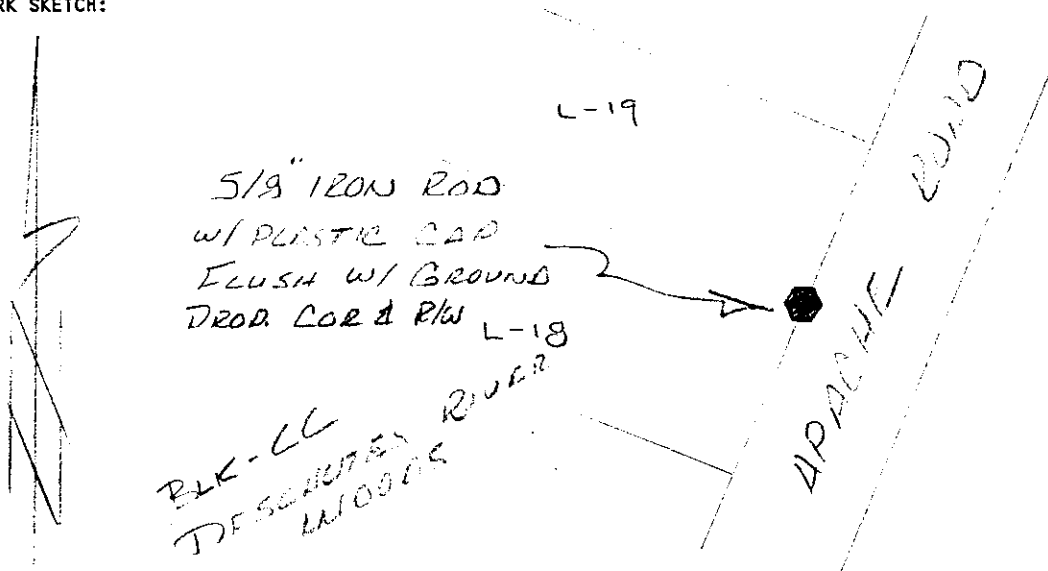 RK SKETCH:
L-19
5/8" IRON ROD
W/ PLASTIC CAP
FLUSH W/ GROUND
PROP. COR & R/W
L-18
BLK-CC
DESCHUTES RIVER
WOODS
APACHE ROAD
N